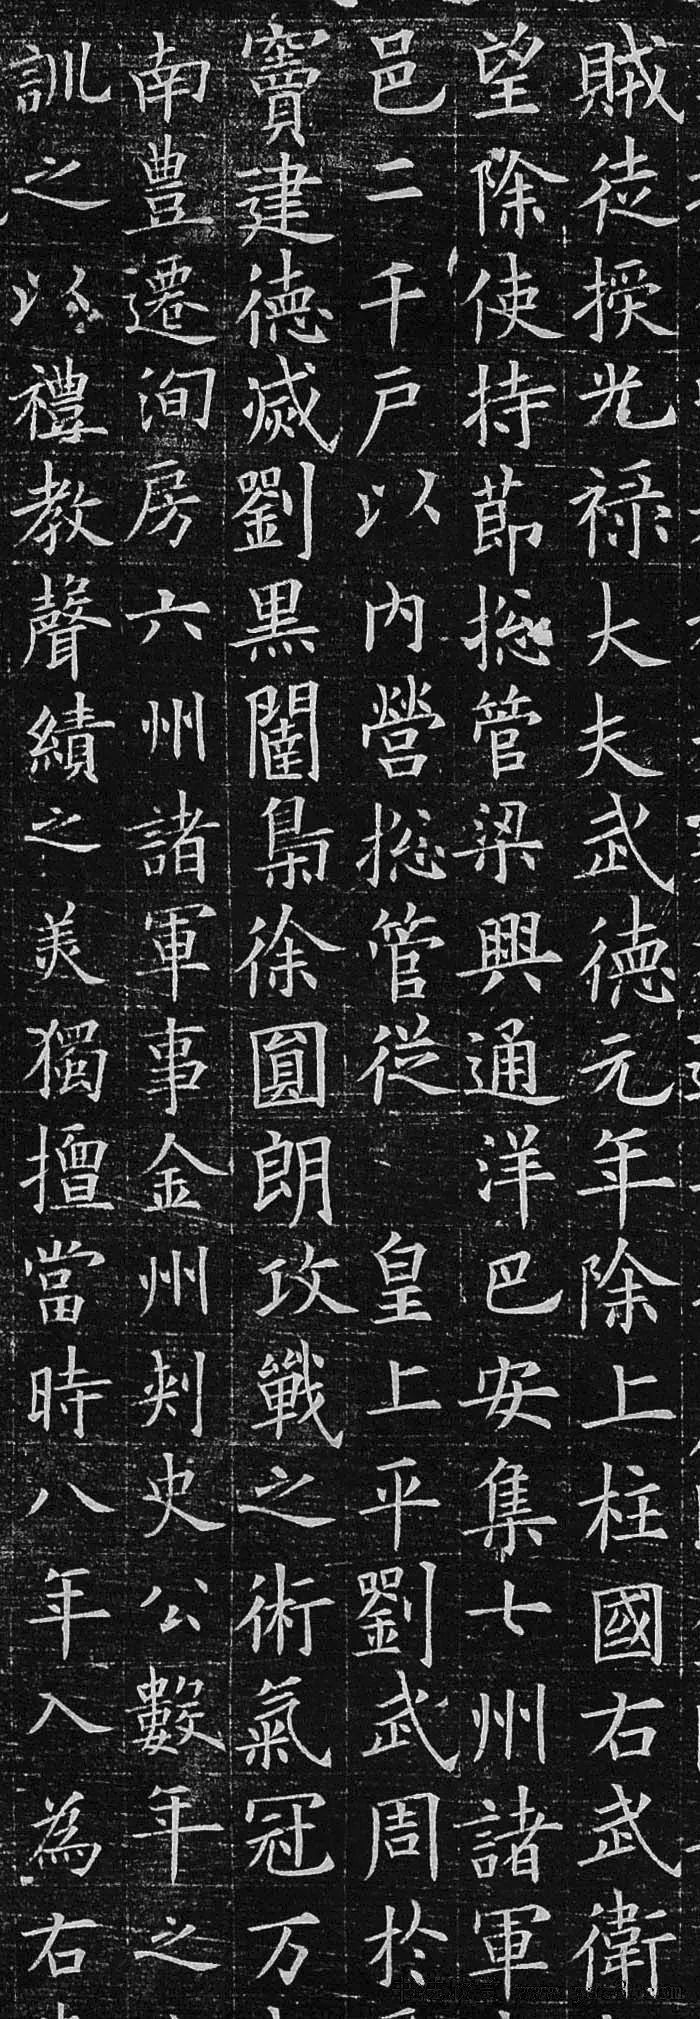 賊徒授光祿大夫武德元年除上柱國右武衛
望除使持節捴管梁興通洋巴安集七州諸軍
邑二千戶以內營捴管從皇上平劉武周於
竇建德滅劉黑闥梟徐圓朗攻戰之術氣冠万
南豊遷洵房六州諸軍事金州刾史公數年之
訓之以禮教聲績之美獨擅當時八年入為右